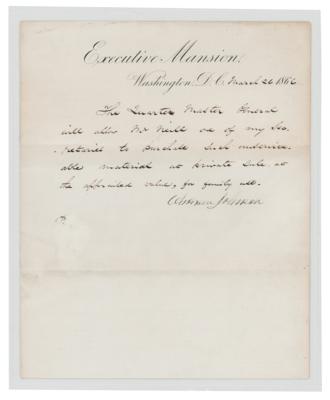 Executive Mansion,
Washington, D.C. March 26 1866
The Quarter Master General
will allow Mr Neill one of my Sec
retaries to purchase such unservice
able material at private sale at
the appraised value, for family use.
Andrew Johnson